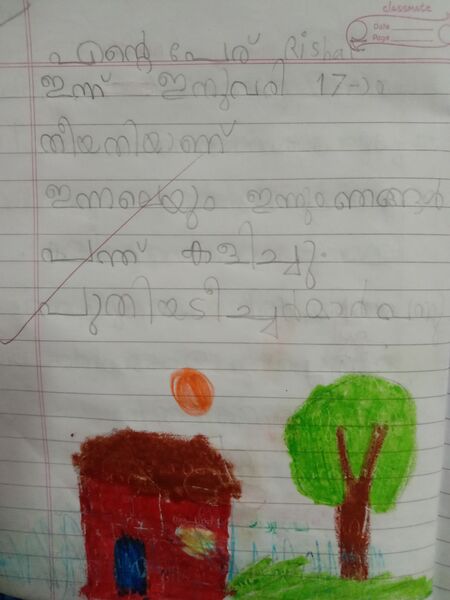 classmate
Date
Page
എന്റെ പേര് Risha
ഇന്ന് ഇനുവരി 17-ാം
തീയതിയാണ്
ഇന്നലെയും ഇന്നും ഞങ്ങൾ
പന്ത് കളിച്ചു.
പുതിയ ടീച്ചർമാർ വന്നു